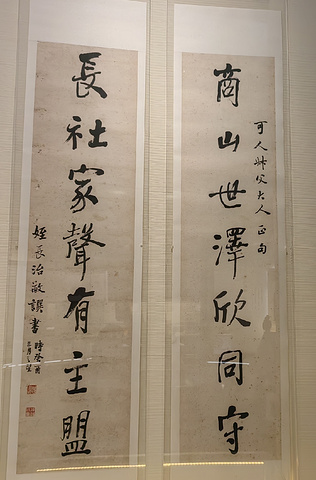 商山世澤欣同守
可人帥父大人正句
長社家聲有主盟
姪長治敬譔書
時癸酉